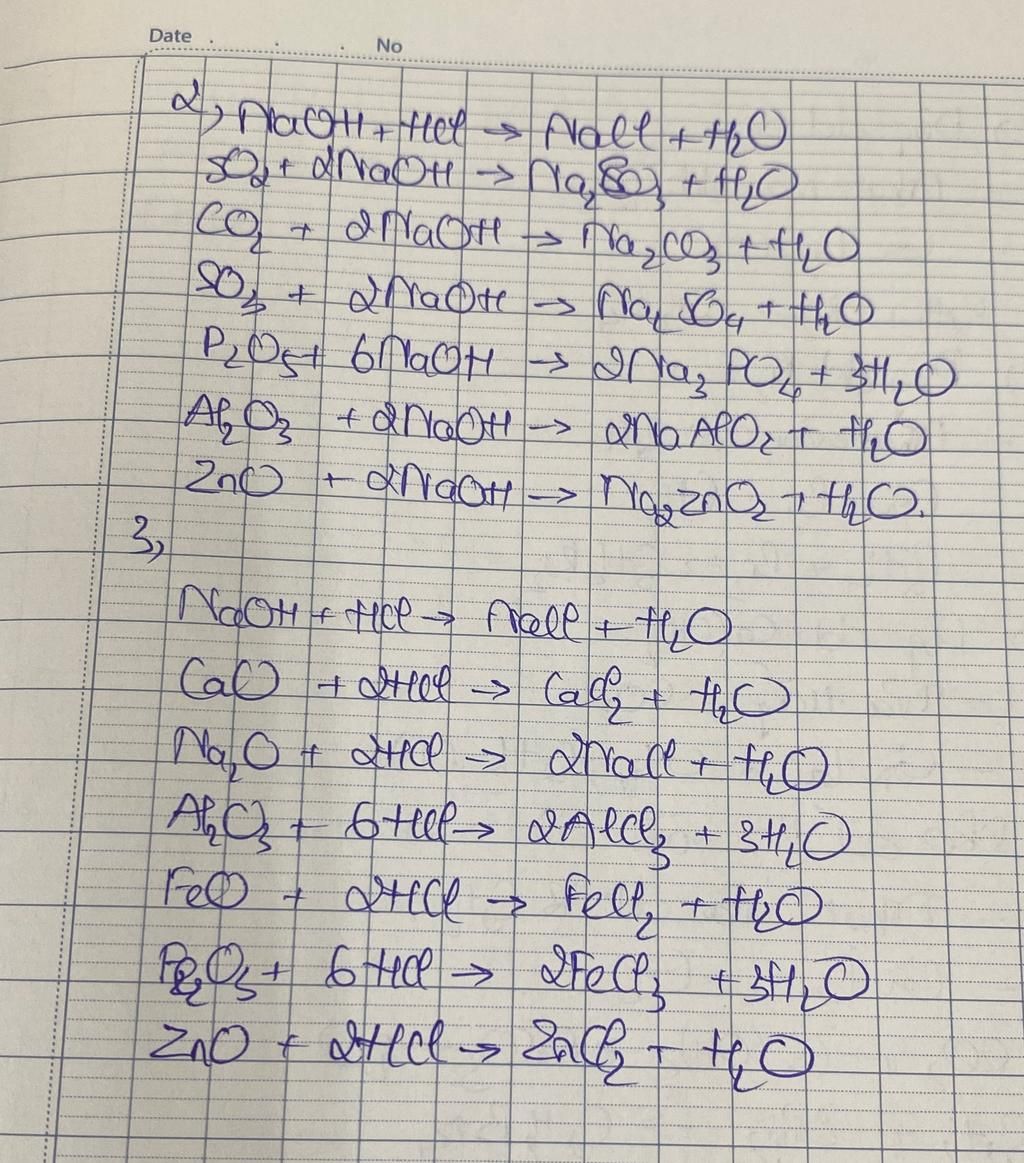 Date . . . No
2, NaOH + HCl → NaCl + H₂O
SO₂ + 2NaOH → Na₂SO₃ + H₂O
CO₂ + 2NaOH → Na₂CO₃ + H₂O
SO₃ + 2NaOH → Na₂SO₄ + H₂O
P₂O₅ + 6NaOH → 2Na₃PO₄ + 3H₂O
Al₂O₃ + 2NaOH → 2NaAlO₂ + H₂O
ZnO + 2NaOH → Na₂ZnO₂ + H₂O.
3,
NaOH + HCl → NaCl + H₂O
CaO + 2HCl → CaCl₂ + H₂O
Na₂O + 2HCl → 2NaCl + H₂O
Al₂O₃ + 6HCl → 2AlCl₃ + 3H₂O
FeO + 2HCl → FeCl₂ + H₂O
Fe₂O₃ + 6HCl → 2FeCl₃ + 3H₂O
ZnO + 2HCl → ZnCl₂ + H₂O